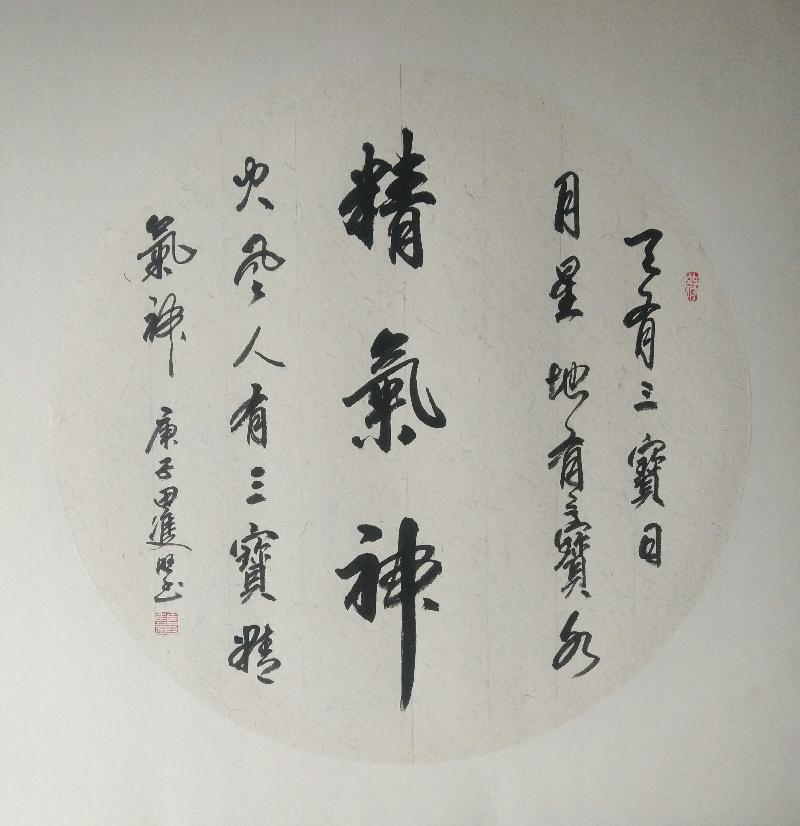 天有三寶日
月星地有三寶水
精氣神
火風人有三寶精
氣神
庚子田進